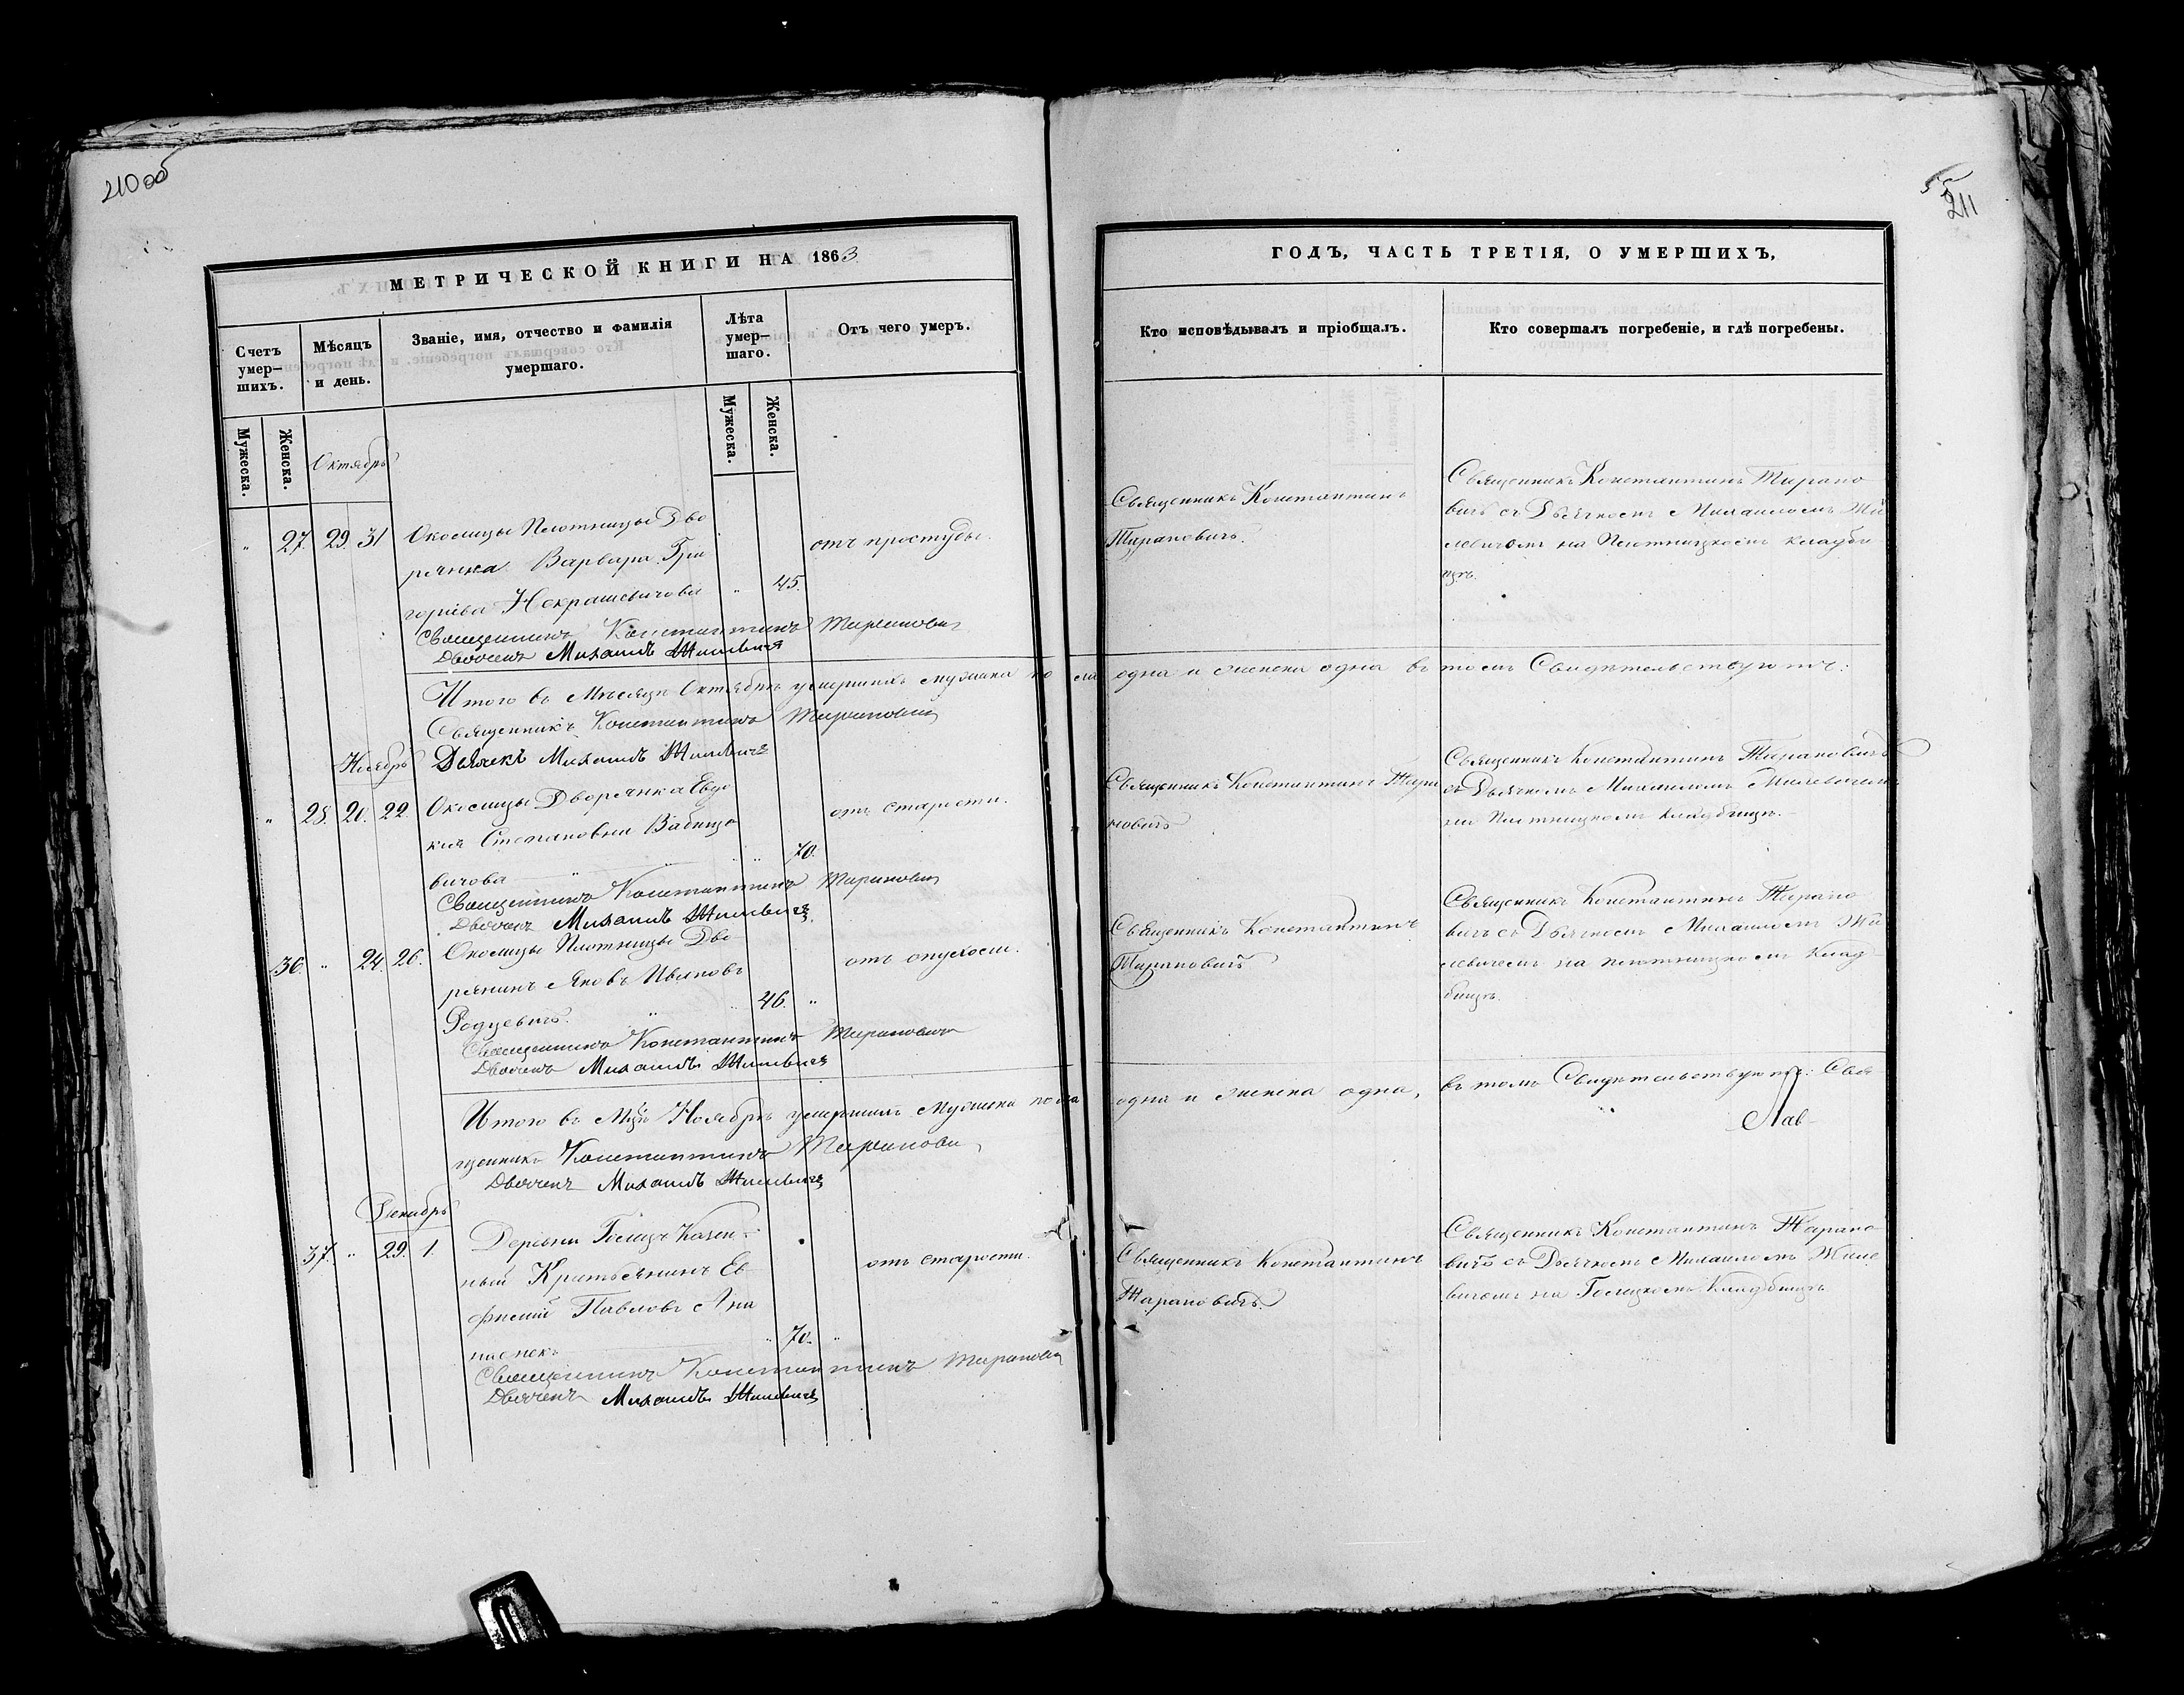 210 об
МЕТРИЧЕСКОЙ КНИГИ НА 1863
Счетъ умер-шихъ.
Мѣсяцъ и день.
Званіе, имя, отчество и фамилія умершаго.
Лѣта умер-шаго.
Отъ чего умеръ.
Мужеска.
Женска.
Мужеска.
Женска.
Октябрь
" 27. 29. 31 Околицы Плотницы Дво
рянка Варвара Гри
горіева Некрашевичова " 45.
отъ простуды.
Священникъ Константинъ Тарановичъ
Дьячекъ Михаилъ Жилевичъ
Итого въ Мѣсяцѣ Октябрѣ умершихъ мужеска пола
Священникъ Константинъ Тарановичъ
Ноябрь
Дьячекъ Михаилъ Жилевичъ
" 28. 20. 22. Околицы Дворянка Евдо
кія Степановна Бабиця
вичова " 70.
отъ старости.
Священникъ Константинъ Тарановичъ
Дьячекъ Михаилъ Жилевичъ
36. " 24. 26. Околицы Плотницы Дво
рянинъ Яковъ Ивановъ
Родзевичъ. 46. "
отъ опухоли.
Священникъ Константинъ Тарановичъ
Дьячекъ Михаилъ Жилевичъ
Итого въ Мцѣ Ноябрѣ умершихъ мужеска пола
щенникъ Константинъ Тарановичъ
Дьячекъ Михаилъ Жилевичъ
Декабрь
37. " 29. 1. Деревни Гольцъ Казен-
ный Крестьянинъ Ев
фимій Павловъ Апа
насчекъ " 70. "
отъ старости.
Священникъ Константинъ Тарановичъ
Дьячекъ Михаилъ Жилевичъ
55
211
ГОДЪ, ЧАСТЬ ТРЕТІЯ, О УМЕРШИХЪ,
Кто исповѣдывалъ и пріобщалъ.
Кто совершалъ погребеніе, и гдѣ погребены.
Священникъ Константинъ
Тарановичъ.
Священникъ Константинъ Тарано
вичъ съ Дьячкомъ Михаиломъ Жи
левичомъ на Плотницкомъ кладби
щѣ.
одна и женска одна въ томъ Свидѣтельствуютъ:
Священникъ Константинъ Тара
новичъ
Священникъ Константинъ Тарановичъ
съ Дьячкомъ Михаиломъ Жилевичемъ
на Плотницкомъ кладбищѣ.
Священникъ Константинъ
Тарановичъ
Священникъ Константинъ Тарано
вичъ съ Дьячкомъ Михаиломъ Жи
левичемъ на плотницкомъ Клад-
бищѣ.
одна и женска одна, въ томъ Свидѣтельствуютъ: Свя-
Лав-
Священникъ Константинъ
Тарановичъ.
Священникъ Константинъ Тарано
вичъ съ Дьячкомъ Михаиломъ Жиле
вичомъ на Гольцкомъ Кладбищѣ